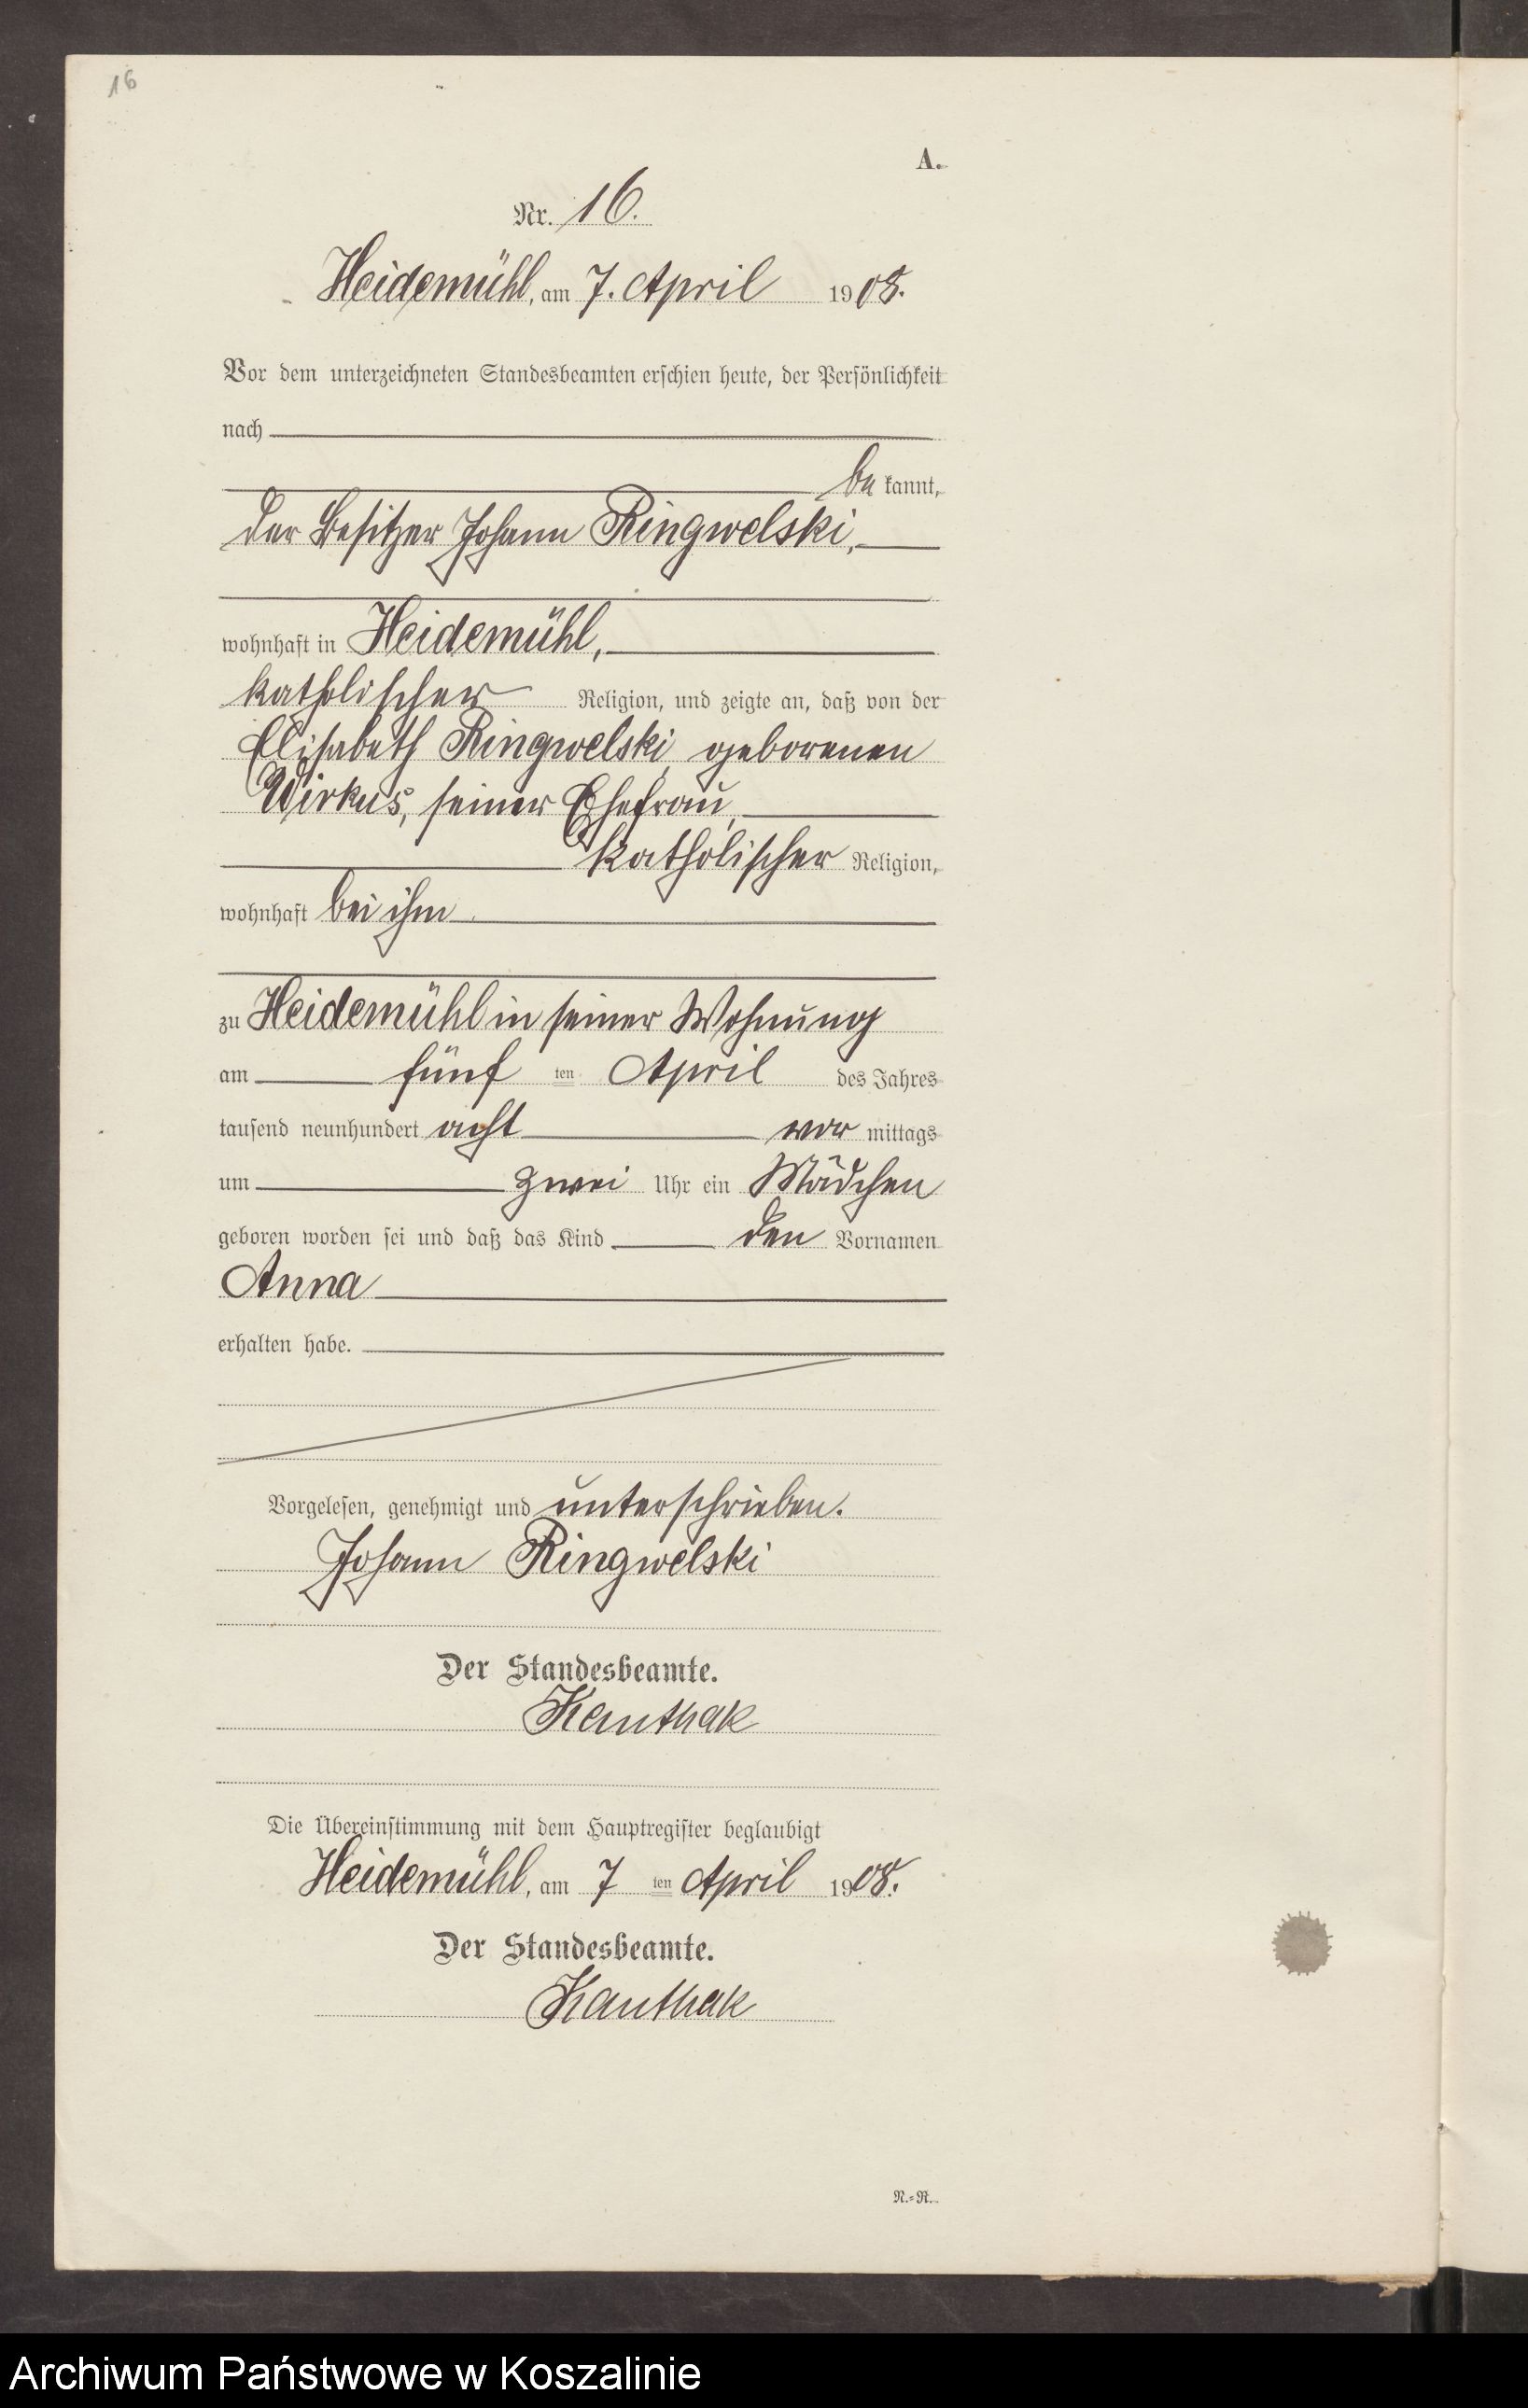 16
A.
Nr. 16.
Heidemühl, am 7. April 1908.
Vor dem unterzeichneten Standesbeamten erschien heute, der Persönlichkeit
nach
be kannt,
der Besitzer Johann Ringwelski,
wohnhaft in Heidemühl,
katholischer Religion, und zeigte an, daß von der
Elisabeth Ringwelski geborenen
Wirkus, seiner Ehefrau,
katholischer Religion,
wohnhaft bei ihm
zu Heidemühl in seiner Wohnung
am fünf ten April des Jahres
tausend neunhundert acht vor mittags
um zwei Uhr ein Mädchen
geboren worden sei und daß das Kind den Vornamen
Anna
erhalten habe.
Vorgelesen, genehmigt und unterschrieben.
Johann Ringwelski
Der Standesbeamte.
Kauthak
Die Übereinstimmung mit dem Hauptregister beglaubigt
Heidemühl, am 7 ten April 1908.
Der Standesbeamte.
Kauthak
N.=R.
Archiwum Państwowe w Koszalinie